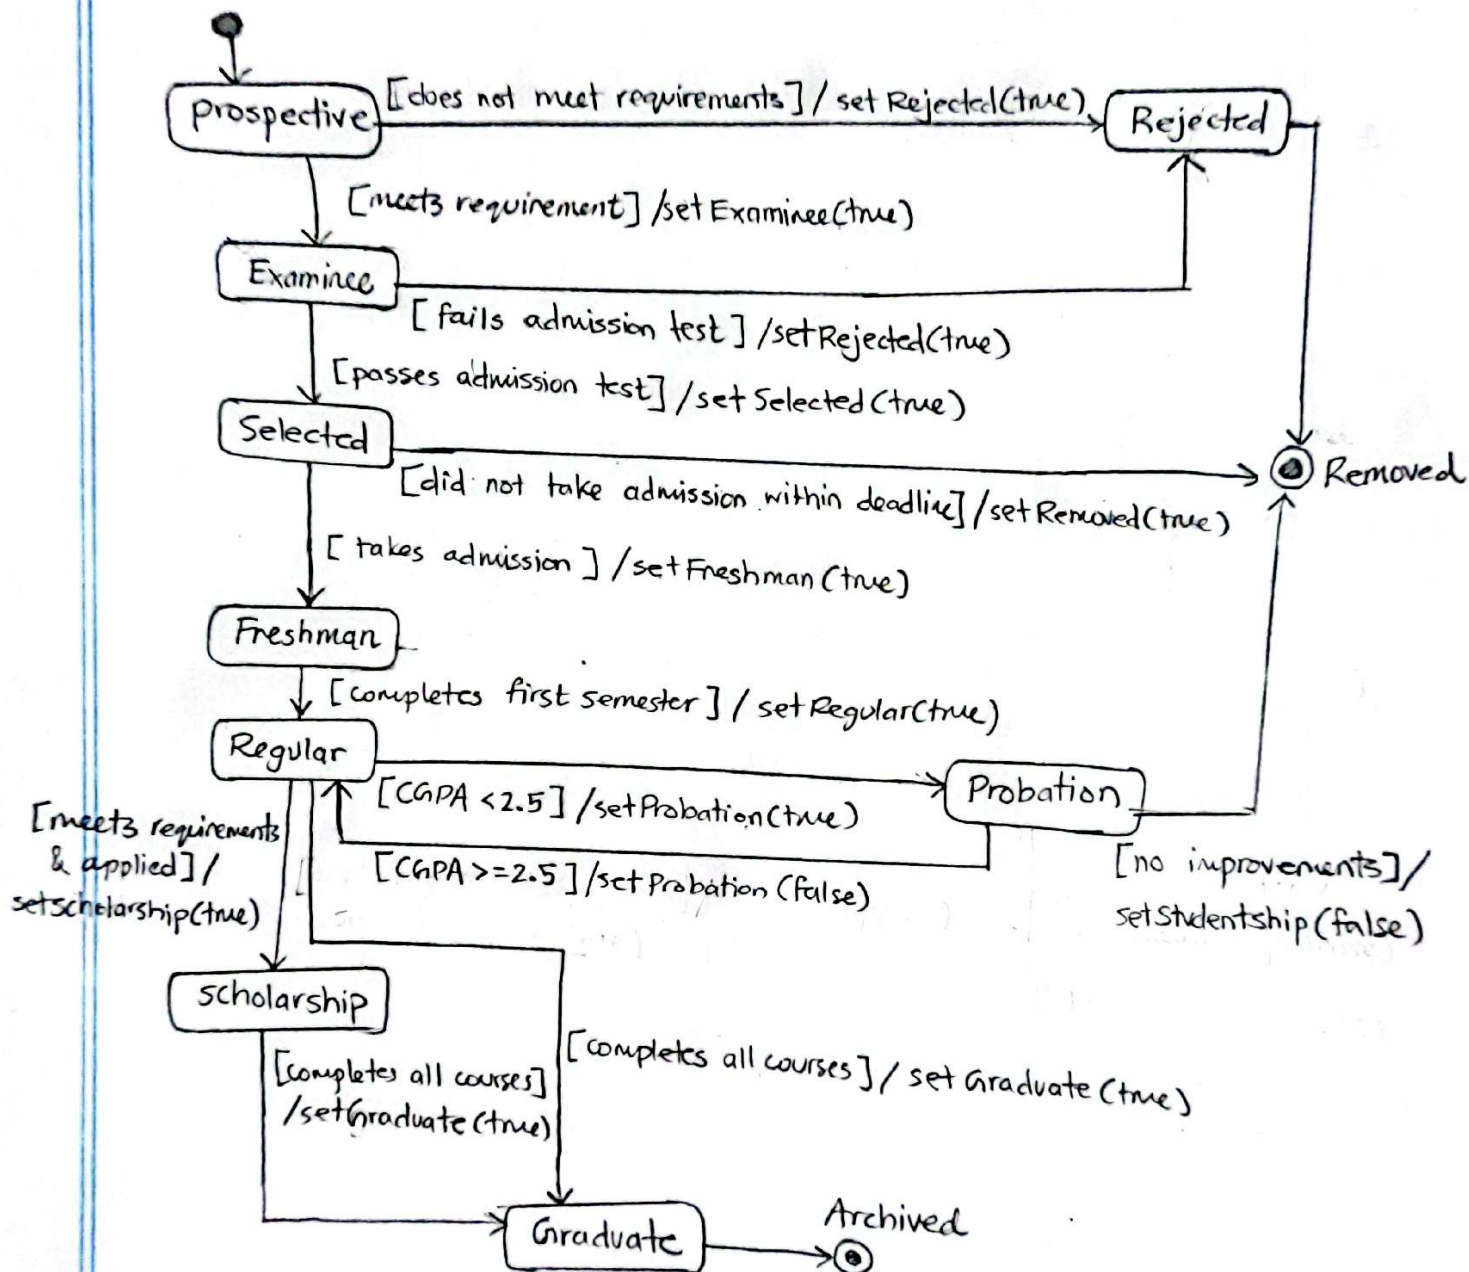 Prospective
[does not meet requirements] / set Rejected(true)
Rejected
[meets requirement] /set Examinee(true)
Examinee
[ fails admission test ] /set Rejected(true)
[passes admission test] /set Selected (true)
Selected
Removed
[did not take admission within deadline] /set Removed(true)
[ takes admission ] /set Freshman (true)
Freshman
[completes first semester ] / set Regular(true)
Regular
[CGPA <2.5 ] /set Probation(true)
Probation
[meets requirements
& applied] /
setscholarship(true)
[CGPA >=2.5 ] /set Probation (false)
[no improvements] /
set Studentship (false)
scholarship
[completes all courses]
/setGraduate (true)
[completes all courses] / set Graduate (true)
Graduate
Archived